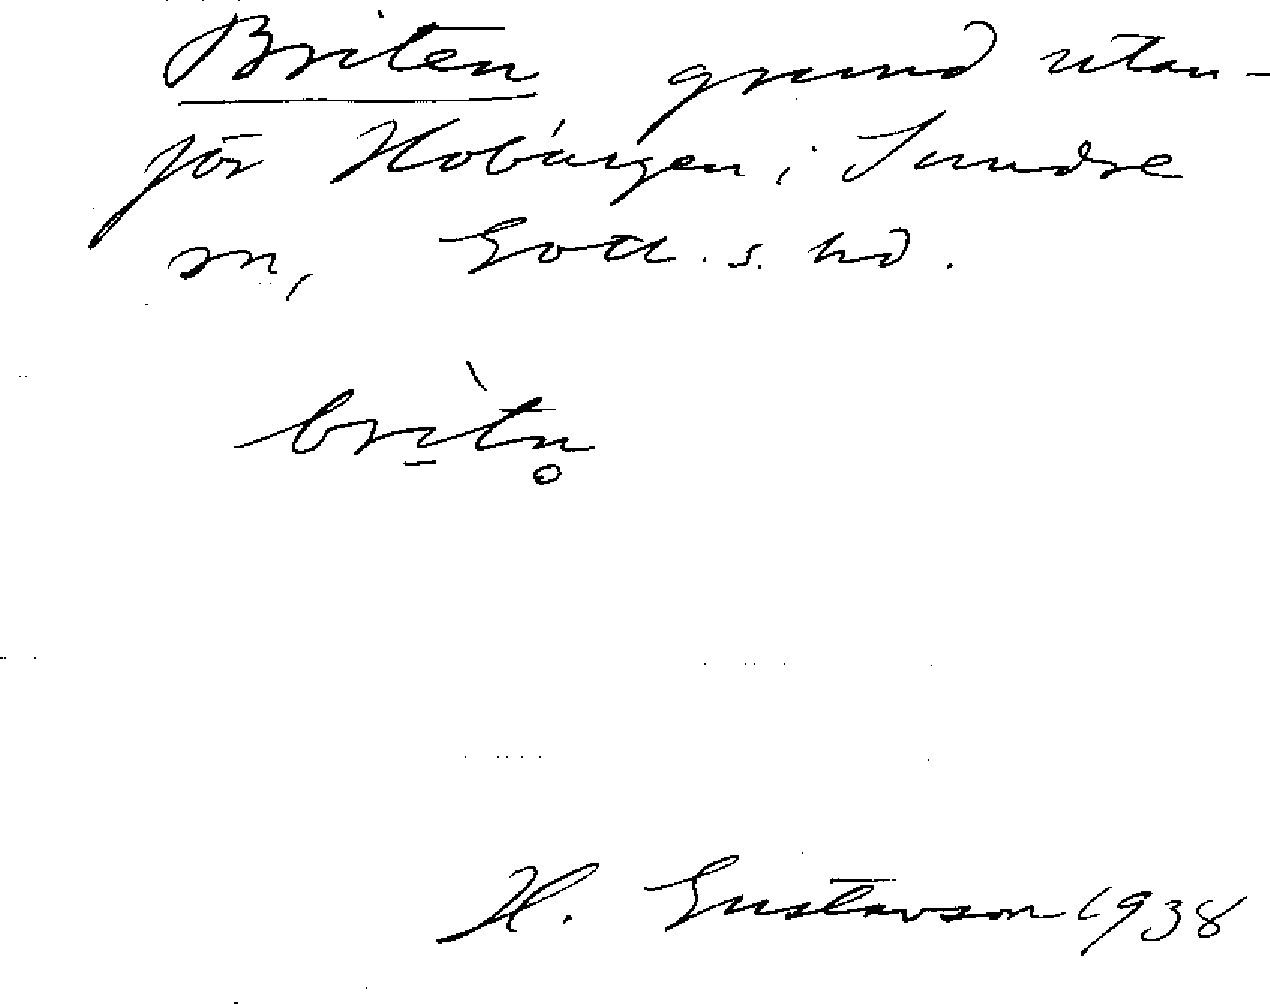 Briten grund utan-
för Hoburgen i Sundre
sn, Gotl. s. hd.
bri̱tn̥
H. Gustavson 1938